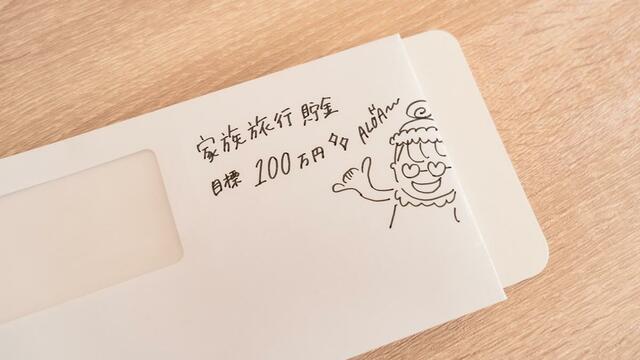 家族旅行 貯金
目標 100万円
ALOHA〜